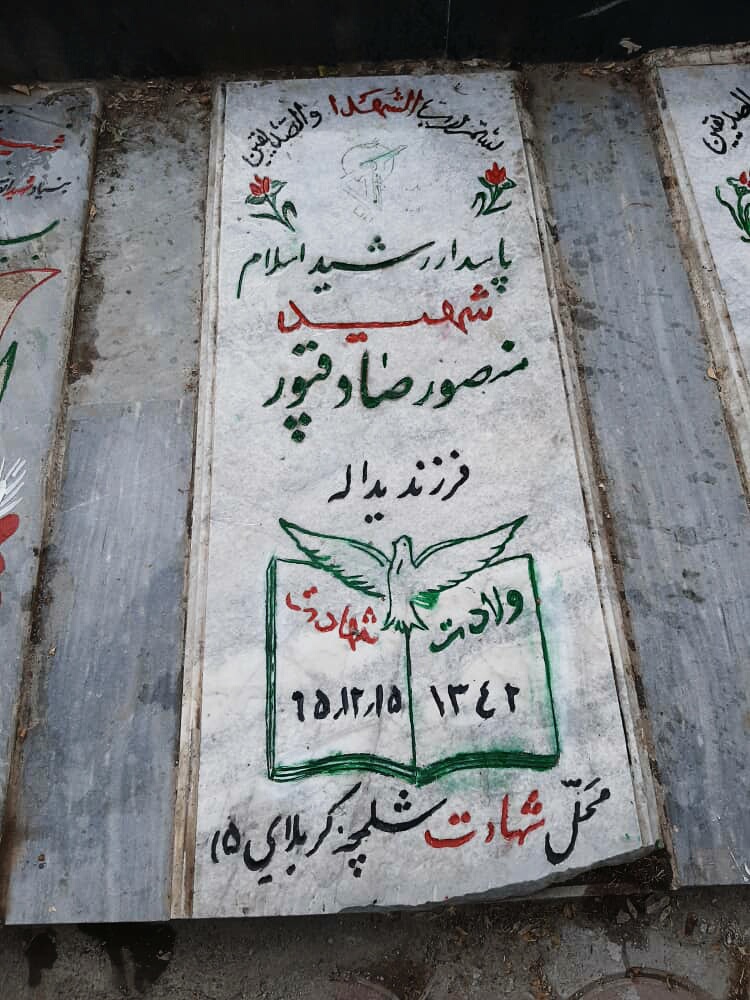 بسم رب الشهدا والصدیقین
پاسدار رشید اسلام
شهید
منصور صادقپور
فرزند یداله
ولادت
۱۳٤۲
شهادت
۶۵٫۱۲٫۱۵
محلّ شهادت شلمچه کربلاي ۵
بنیاد شهید